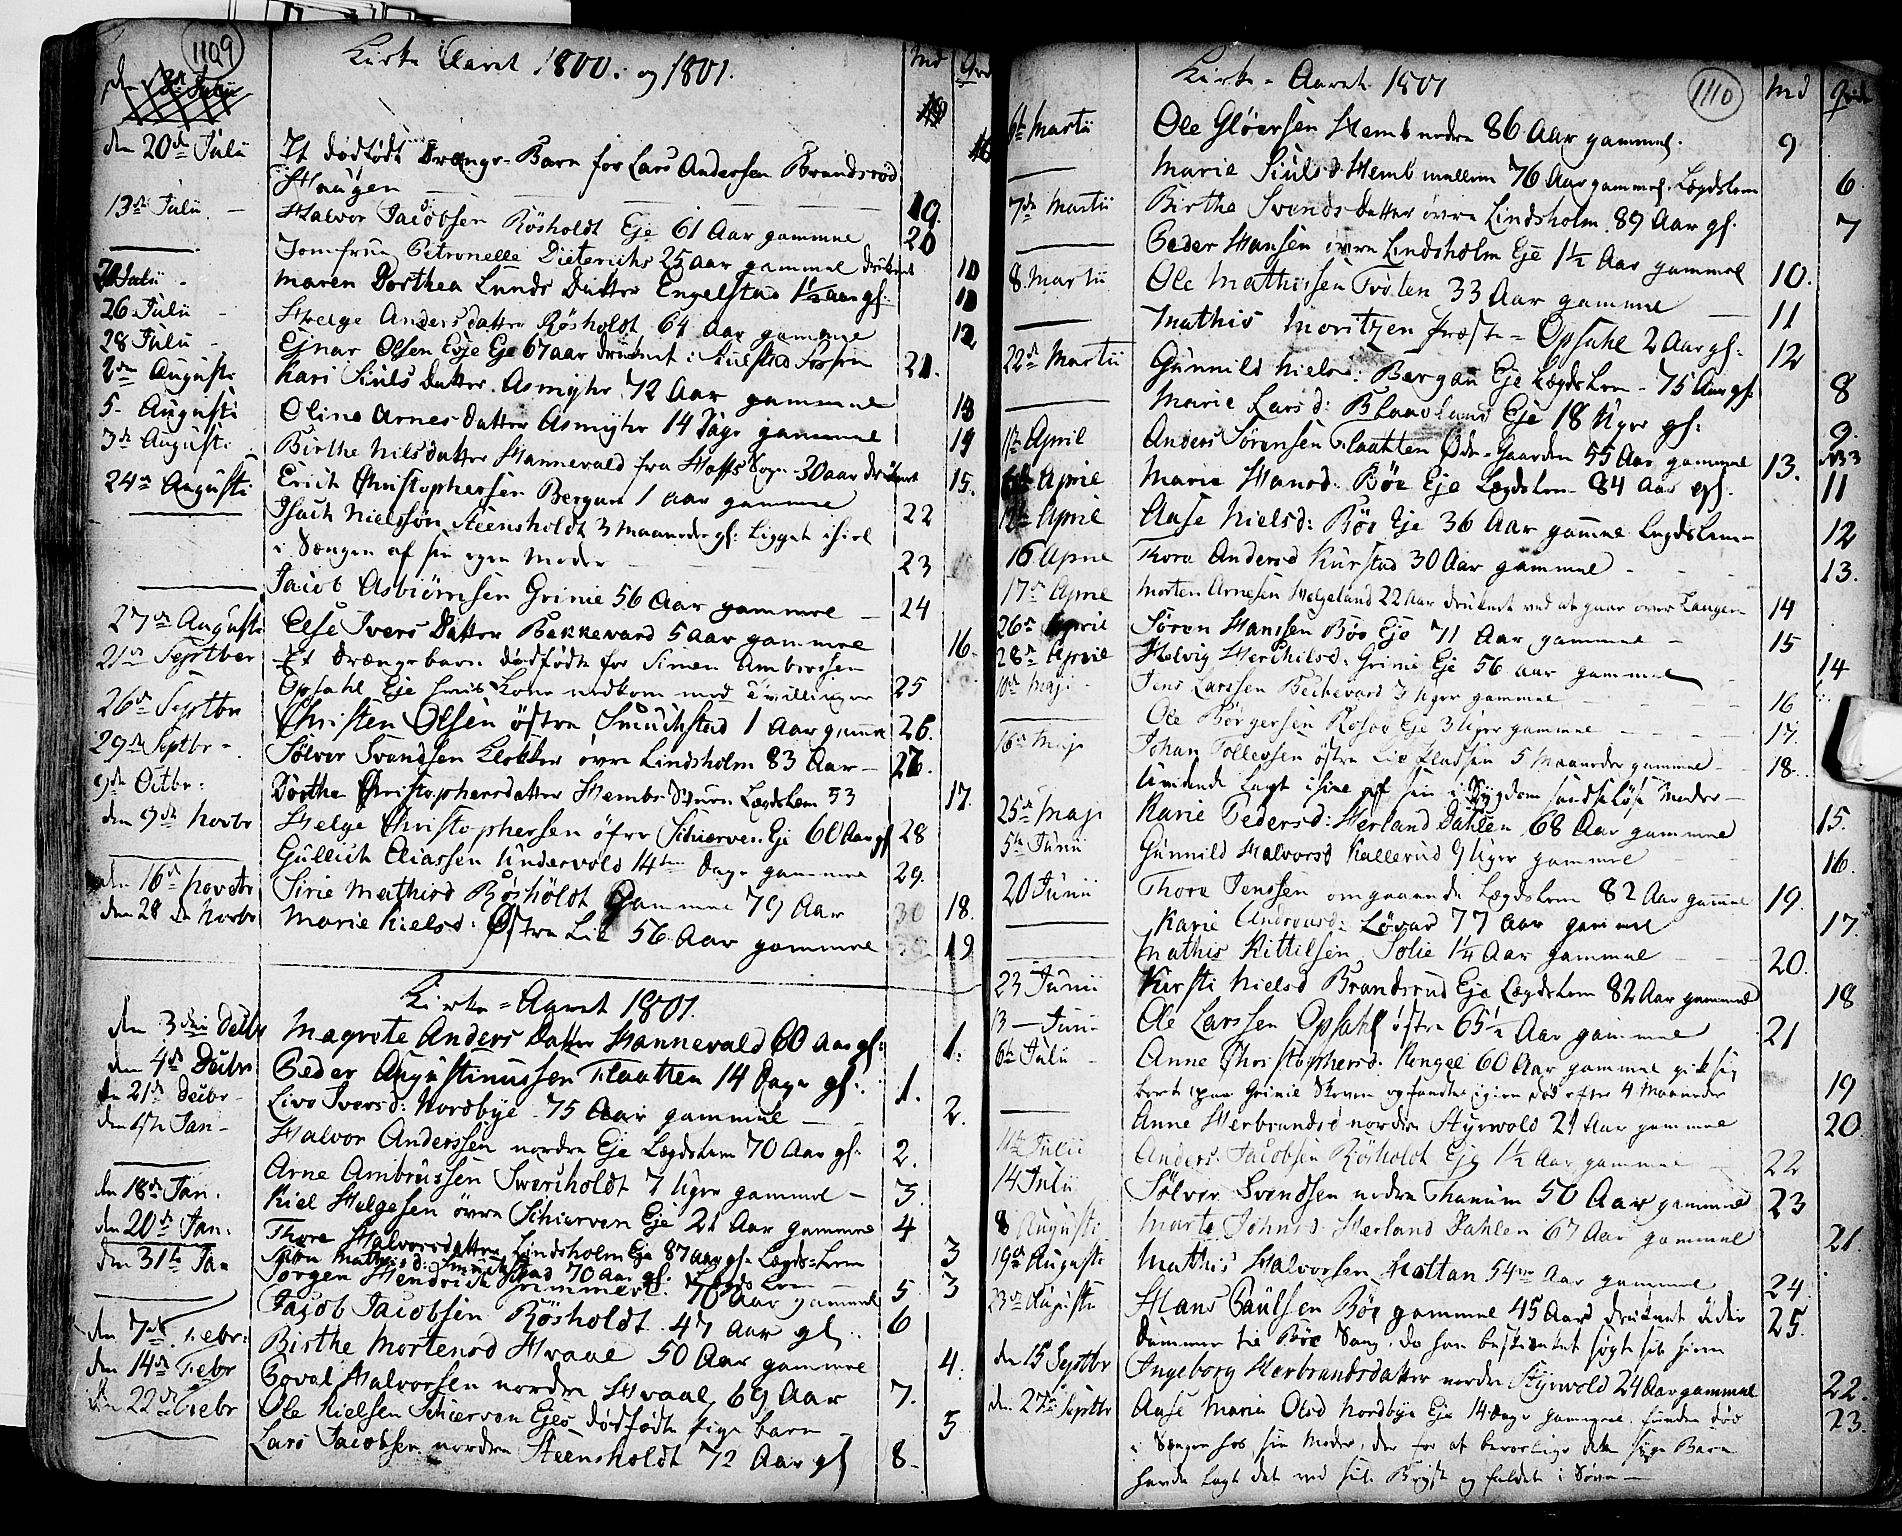 1109
Kirke Aaret 1800. og 1801.
Md
den 20de Julii Et dødfødt Drænge-Barn for Lars Andersen Brandsrød
Haugen 19.
13de Julii Halvor Jacobsen Røsholdt Eje 61 Aar gammel 20
Jomfrue Petronelle Dieterichs 25 aar gammel 10
Julii Maren Dorthea Lunds Datter Engelstad 1½ aar gl.
26 Julii Helge Anders datter Røsholdt 64 Aar gammel 12
28 Julii Ejnar Olsen Eje 67 aar 21.
2den Augusti Kari Siuls Datter Asmyhr 72 Aar gammel 13
5 Augusti Oline Arnes datter Asmyhr 14 Dage gammel 14
7de Augusti Birthe Nilsdatter Hannevald fra Hoffs Sogn 30 aar 15.
24de Augusti Erich Christophersen Bergan 1 aar gammel 22
Isach Nielssøn Steensholdt 3 Maaneder gl: Ligget ihiel
i Sengen af sin egen Moder 23
Jacob Asbiørnsen Grinie 56 Aar gammel 24
27de Augusti Else Ivers Datter Bekkevard 5 aar gammel 16.
21de Septber Et drængebarn dødfødt for Simen Ambrossen
Opsahl Eje hvis Kone nedkom med Tvillinger 25
26de Septbr Christen Olsen østre Smuchstad 1 Aar gamml 26.
29de Septbr Sølver Svendsen Klokker øvre Lindsholm 83 Aar 27.
9de Octbr: Dorthe Christophersdatter Hembs Lægdslem 53 17.
den 9de Novbr Helge Christophersen øfre Schierven Eje 60 Aar gl 28
Gullich Eliassen Undervold 14 Dage gammel 29.
den 16de Novbr Sirie Mathisd Røsholdt gammel 79 Aar 18.
den 28de Novbr Marie Nielsd: Østre Lie 56 Aar gammel 19
Kirke-Aaret 1801.
den 3die Decbr Magrete Anders Datter Hannevald 60 Aar gl: 1.
den 4de Decbr Peder Augustinussen Flaatten 14 Dage gl: 1.
den 21de Decbr Live Iversd: Nordbye 75 Aar gammel 2.
den 1ste Jan Halvor Anderssen nordre Eje Lægdslem 70 Aar gl: 2.
Arne Ambrussen Sweriholdt 7 Uger gammel 3.
den 18de Jan. Niel Helgesen øvre Schierven Eje 21 Aar gammel 4
den 20de Jan. Thore Halvorsdatter Lindsholm Eje 87 aar gl. Lægds-Lem 3
den 31te Jan Mathisd: 70 Aar gl: 3
Jørgen Hendrich 70 Aar gammel 5
Jacob Jacobsen Røsholdt 47 Aar gl: 6
den 7de Febr: Birthe Mortensd Hvaal 50 Aar gammel 4.
den 14de Febr Povel Halvorsen nordre Hvaal 69 Aar 7.
22de Febr Ole Nielsen Schierven Ejes dødfødt pige barn 5
Lars Jacobsen nordre Steensholdt 72 Aar gl 8.
1110
Kirke-Aaret 1801
Md
6te Martii Ole Gløersen Hemb nedre 86 Aar gammel. 9
Marie Siulsd Hemb mellem 76 Aar gammel. Lægdslem 6.
7de Martii Birthe Svends datter øvre Lindsholm 89 Aar gl. 7
Peder Hansen øvre Lindsholm Eje 1½ Aar gammel 10.
8 Martii Ole Mathissen Tvøten 33 Aar gammel 11
Mathis Moritzen præste-Opsahl 2 Aar gl: 12
22de Martii Gunnild Nielsd: Bergan Eje Lægdslem 75 Aar gl: 8
Marie Larsd: Eje 18 Uger gl: 9.
April Anders Sørensen Flaatten Øde-Gaarden 55 Aar gammel 13.
April Marie Hansd: Bøe Eje Lægdslem 84 Aar gl. 11
April Aase Nielsd: Bøe Eje 36 Aar gamml Lægdslem 12
16 April Thora Andersd Kurstad 30 Aar gammel 13.
17de April Morten Arnesen Helgeland 22 Aar druknet ved at gaae over Laugen 14
26de April Søren Hanssen Bøe Eje 71 Aar gammel 15
28de April Helvig Herchilsd: Grinie Eje 56 aar gammel 14
10de Maji Jens Larssen Bechevard 3 Uger gammel 16
Ole Børgersen Eje 3 Uger gammel 17.
16de Maji Johan Tollefsen østre Lie 5 Maaneder gammel 18.
Lagt ihiel af sin i Sygdom sandseløse Moder
25de Maji Karie Pedersd: Herland Dahlen 68 Aar gammel 15.
5te Junii Gunnild Halvorsd Kallerud 9 Uger gammel 16.
20 Junii Thore Jenssen omgaaende Lægdslem 82 Aar gammel 19.
Karie Løvar 77 Aar gammel 17.
Mathis Kittilsen Solie 1¼ Aar gammel 20.
23 Junii Kirsti Nielsd Brandsrud Eje Lægdslem 82 Aar gammel 18
13 Junii Ole Larssen Opsahl østre 65½ Aar gammel 21
6te Julii Anne Christophersd: Rengel 60 Aar gammel gik sig
bort paa Grinie Skoven og fandtes igien død efter 4 Maaneder 19
Anne Herbrandsd nordre Styrvold 21 Aar gammel 20.
11te Julii Anders Jacobsen Røsholdt Eje 1½ Aar gammel 22
14 Julii Sølver Svendsen nedre Thanum 50 Aar gammel 23
8 Augusti Marte Johnsd. Herland Dahlen 67 Aar gammel 21.
19de Augusti Mathis Halvorsen Kottan 54 Aar gammel 24.
23de Augusti Hans Paulsen Bøe gammel 45 Aar druknet
Dammen til Bøe Saug, da han 25.
den 15 Septbr Ingeborg Herbrandsdatter nordre Styrvold 24 Aar gammel 22.
den 27de Septbr Aase Marie Olsd Nordbye Eje 14 dage gammel funden død 23.
i Sengen hos sin Moder, der for at beroelige det syge Barn
havde lagt det ved sit Bryst og faldet i Søvn